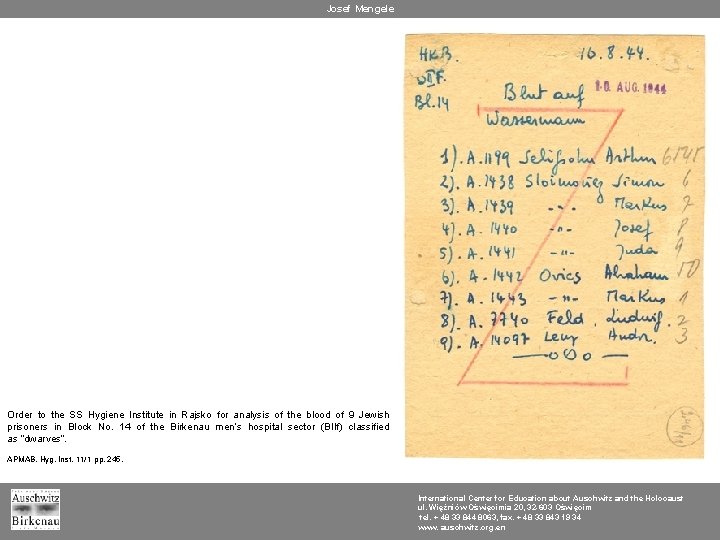 Josef Mengele
HKB. 16.8.44.
BIIF.
Bl.14 Blut auf 18. AUG. 1944
Wassermann
1). A.1199 Seligsohn Arthur 6545
2). A.1438 Sloimovieg Simon 6
3). A.1439 -"- Markus 7
4). A. 1440 -"- Josef 8
5). A. 1441 -"- Juda 9
6). A.1442 Ovics Abraham 50
7). A. 1443 -"- Markus 1
8). A. 7740 Feld, Ludwig. 2
9). A. 14097 Andor. 3
Order to the SS Hygiene Institute in Rajsko for analysis of the blood of 9 Jewish
prisoners in Block No. 14 of the Birkenau men's hospital sector (BIIf) classified
as "dwarves".
APMAB. Hyg. Inst. 11/1 pp. 245.
Auschwitz
Birkenau
International Center for Education about Auschwitz and the Holocaust
ul. Więźniów Oświęcimia 20, 32-603 Oświęcim
tel. + 48 33 844 8063, fax. + 48 33 843 19 34
www. auschwitz. org. en